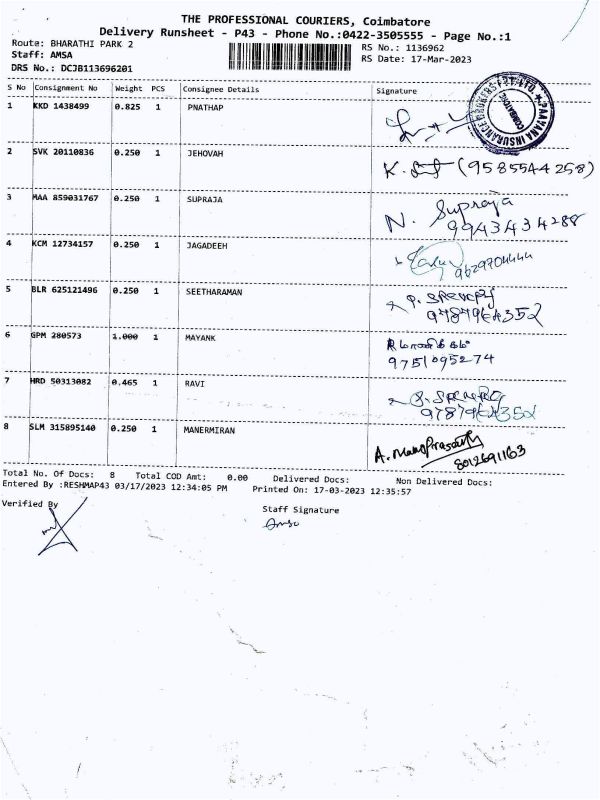 THE PROFESSIONAL COURIERS, Coimbatore
Delivery Runsheet - P43 - Phone No.:0422-3505555 - Page No.:1
Route: BHARATHI PARK 2
RS No.: 1136962
Staff: AMSA
RS Date: 17-Mar-2023
DRS No.: DCJB113696201
S No Consignment No Weight PCS Consignee Details Signature
1 KKD 1438499 0.825 1 PNATHAP
2 SVK 20110836 0.250 1 JEHOVAH K. (9585544258)
3 MAA 859031767 0.250 1 SUPRAJA N. Supraja
9943434288
4 KCM 12734157 0.250 1 JAGADEEH
9629704444
5 BLR 625121496 0.250 1 SEETHARAMAN
6 GPM 280573 1.000 1 MAYANK
9751095274
7 HRD 50313082 0.465 1 RAVI
8 SLM 315895140 0.250 1 MANERMIRAN A. ManoPrasanth
8012691163
Total No. Of Docs: 8 Total COD Amt: 0.00 Delivered Docs: Non Delivered Docs:
Entered By :RESHMAP43 03/17/2023 12:34:05 PM Printed On: 17-03-2023 12:35:57
Verified By
Staff Signature